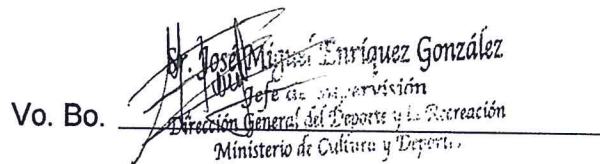 Sr. José Miguel Enríquez González
Jefe de Supervisión
Vo. Bo.
Dirección General del Deporte y la Recreación
Ministerio de Cultura y Deportes